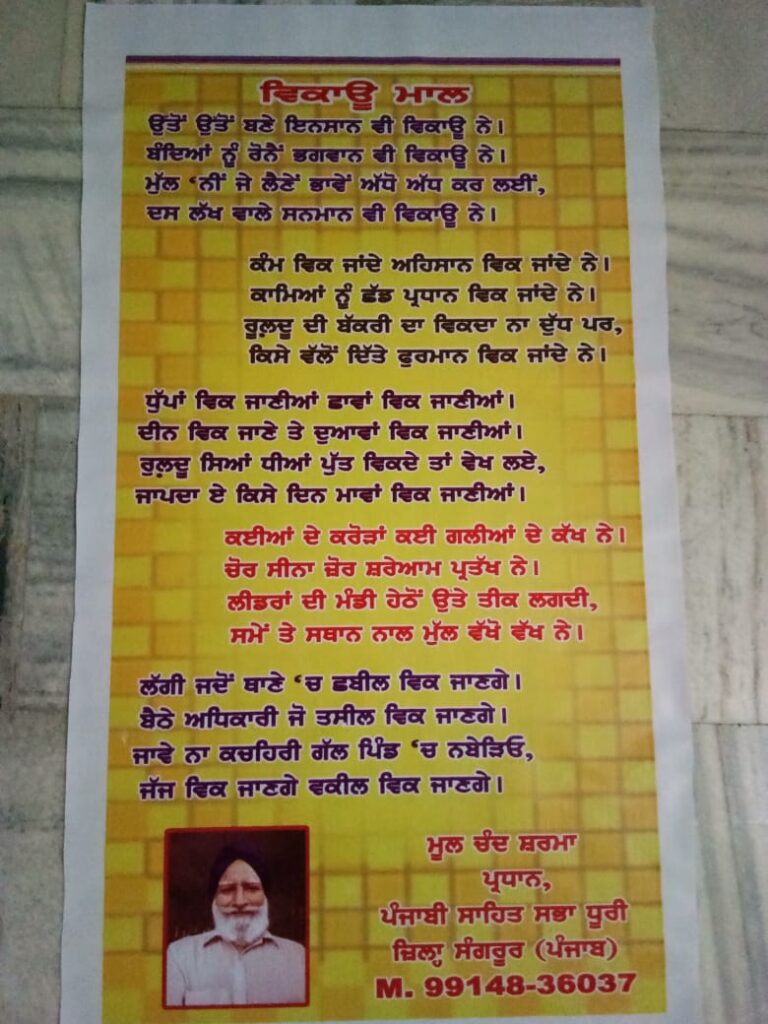 ਵਿਕਾਊ ਮਾਲ
ਉਤੋਂ ਉਤੋਂ ਬਣੇ ਇਨਸਾਨ ਵੀ ਵਿਕਾਊ ਨੇ।
ਬੰਦਿਆਂ ਨੂੰ ਰੋਨੈਂ ਭਗਵਾਨ ਵੀ ਵਿਕਾਊ ਨੇ।
ਮੁੱਲ ‘ਨੀਂ ਜੇ ਲੈਣੇਂ ਭਾਵੇਂ ਅੱਧੋ ਅੱਧ ਕਰ ਲਈਂ,
ਦਸ ਲੱਖ ਵਾਲੇ ਸਨਮਾਨ ਵੀ ਵਿਕਾਊ ਨੇ।
ਕੰਮ ਵਿਕ ਜਾਂਦੇ ਅਹਿਸਾਨ ਵਿਕ ਜਾਂਦੇ ਨੇ।
ਕਾਮਿਆਂ ਨੂੰ ਛੱਡ ਪ੍ਰਧਾਨ ਵਿਕ ਜਾਂਦੇ ਨੇ।
ਰੂਲ਼ਦੂ ਦੀ ਬੱਕਰੀ ਦਾ ਵਿਕਦਾ ਨਾ ਦੁੱਧ ਪਰ,
ਕਿਸੇ ਵੱਲੋਂ ਦਿੱਤੇ ਫੁਰਮਾਨ ਵਿਕ ਜਾਂਦੇ ਨੇ।
ਧੁੱਪਾਂ ਵਿਕ ਜਾਣੀਆਂ ਛਾਵਾਂ ਵਿਕ ਜਾਣੀਆਂ।
ਦੀਨ ਵਿਕ ਜਾਣੇ ਤੇ ਦੁਆਵਾਂ ਵਿਕ ਜਾਣੀਆਂ।
ਰੁਲ਼ਦੂ ਸਿਆਂ ਧੀਆਂ ਪੁੱਤ ਵਿਕਦੇ ਤਾਂ ਵੇਖ ਲਏ,
ਜਾਪਦਾ ਏ ਕਿਸੇ ਦਿਨ ਮਾਵਾਂ ਵਿਕ ਜਾਣੀਆਂ।
ਕਈਆਂ ਦੇ ਕਰੋੜਾਂ ਕਈ ਗਲੀਆਂ ਦੇ ਕੱਖ ਨੇ।
ਚੋਰ ਸੀਨਾ ਜ਼ੋਰ ਸ਼ਰੇਆਮ ਪ੍ਰਤੱਖ ਨੇ।
ਲੀਡਰਾਂ ਦੀ ਮੰਡੀ ਹੇਠੋਂ ਉਤੇ ਤੀਕ ਲਗਦੀ,
ਸਮੇਂ ਤੇ ਸਥਾਨ ਨਾਲ ਮੁੱਲ ਵੱਖੋ ਵੱਖ ਨੇ।
ਲੱਗੀ ਜਦੋਂ ਥਾਣੇ ‘ਚ ਛਬੀਲ ਵਿਕ ਜਾਣਗੇ।
ਬੈਠੇ ਅਧਿਕਾਰੀ ਜੋ ਤਸੀਲ ਵਿਕ ਜਾਣਗੇ।
ਜਾਵੇ ਨਾ ਕਚਹਿਰੀ ਗੱਲ ਪਿੰਡ ‘ਚ ਨਬੇੜਿਓ,
ਜੱਜ ਵਿਕ ਜਾਣਗੇ ਵਕੀਲ ਵਿਕ ਜਾਣਗੇ।
ਮੂਲ ਚੰਦ ਸ਼ਰਮਾ
ਪ੍ਰਧਾਨ,
ਪੰਜਾਬੀ ਸਾਹਿਤ ਸਭਾ ਧੂਰੀ
ਜ਼ਿਲ੍ਹਾ ਸੰਗਰੂਰ (ਪੰਜਾਬ)
M. 99148-36037